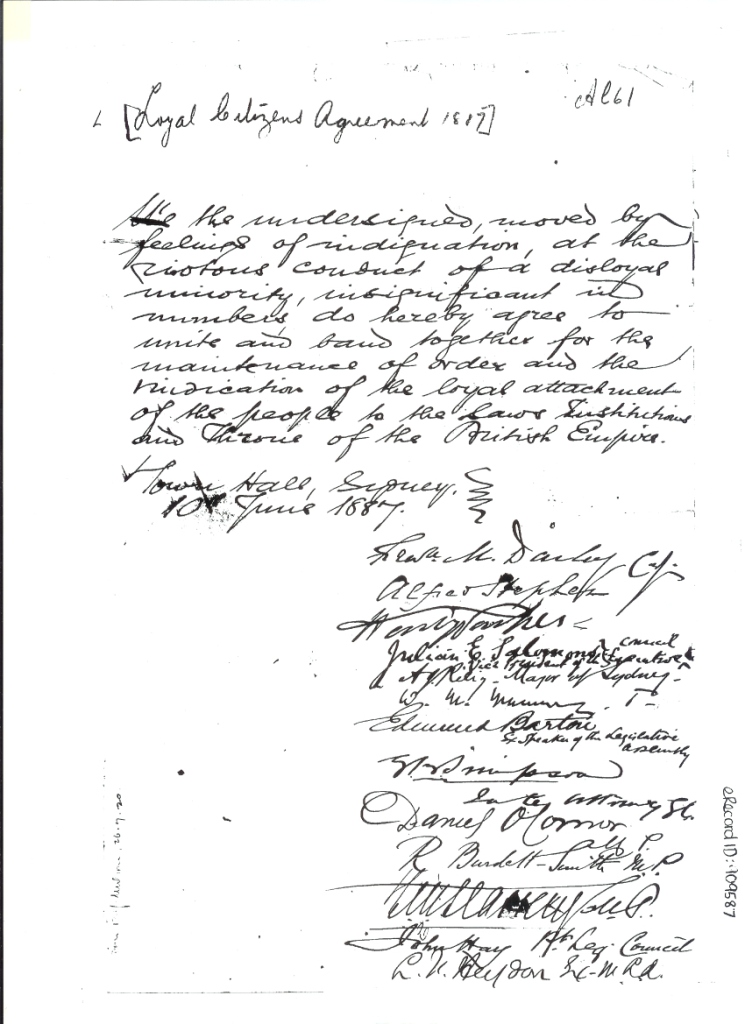 Al61
[Loyal Citizens Agreement 1887]
We the undersigned, moved by
feelings of indignation, at the
riotous conduct of a disloyal
minority, insignificant in
numbers, do hereby agree to
unite and band together for the
maintenance of order and the
vindication of the loyal attachment
of the people to the Laws Institutions
and Throne of the British Empire.
Town Hall, Sydney.
10th June 1887.
Fredk. M. Darley C.J.
Alfred Stephen
Henry Parkes
Julian E. Salomons
Vice President of the Executive Council
A J Riley - Mayor of Sydney -
Edmund Barton
Ex Speaker of the Legislative
Assembly
G B Simpson
Daniel O'Connor
M.P.
R Burdett-Smith M.P.
John Hay Pt. Leg. Council
L. F. Heydon Ex-M.L.A.
eRecord ID: 109587